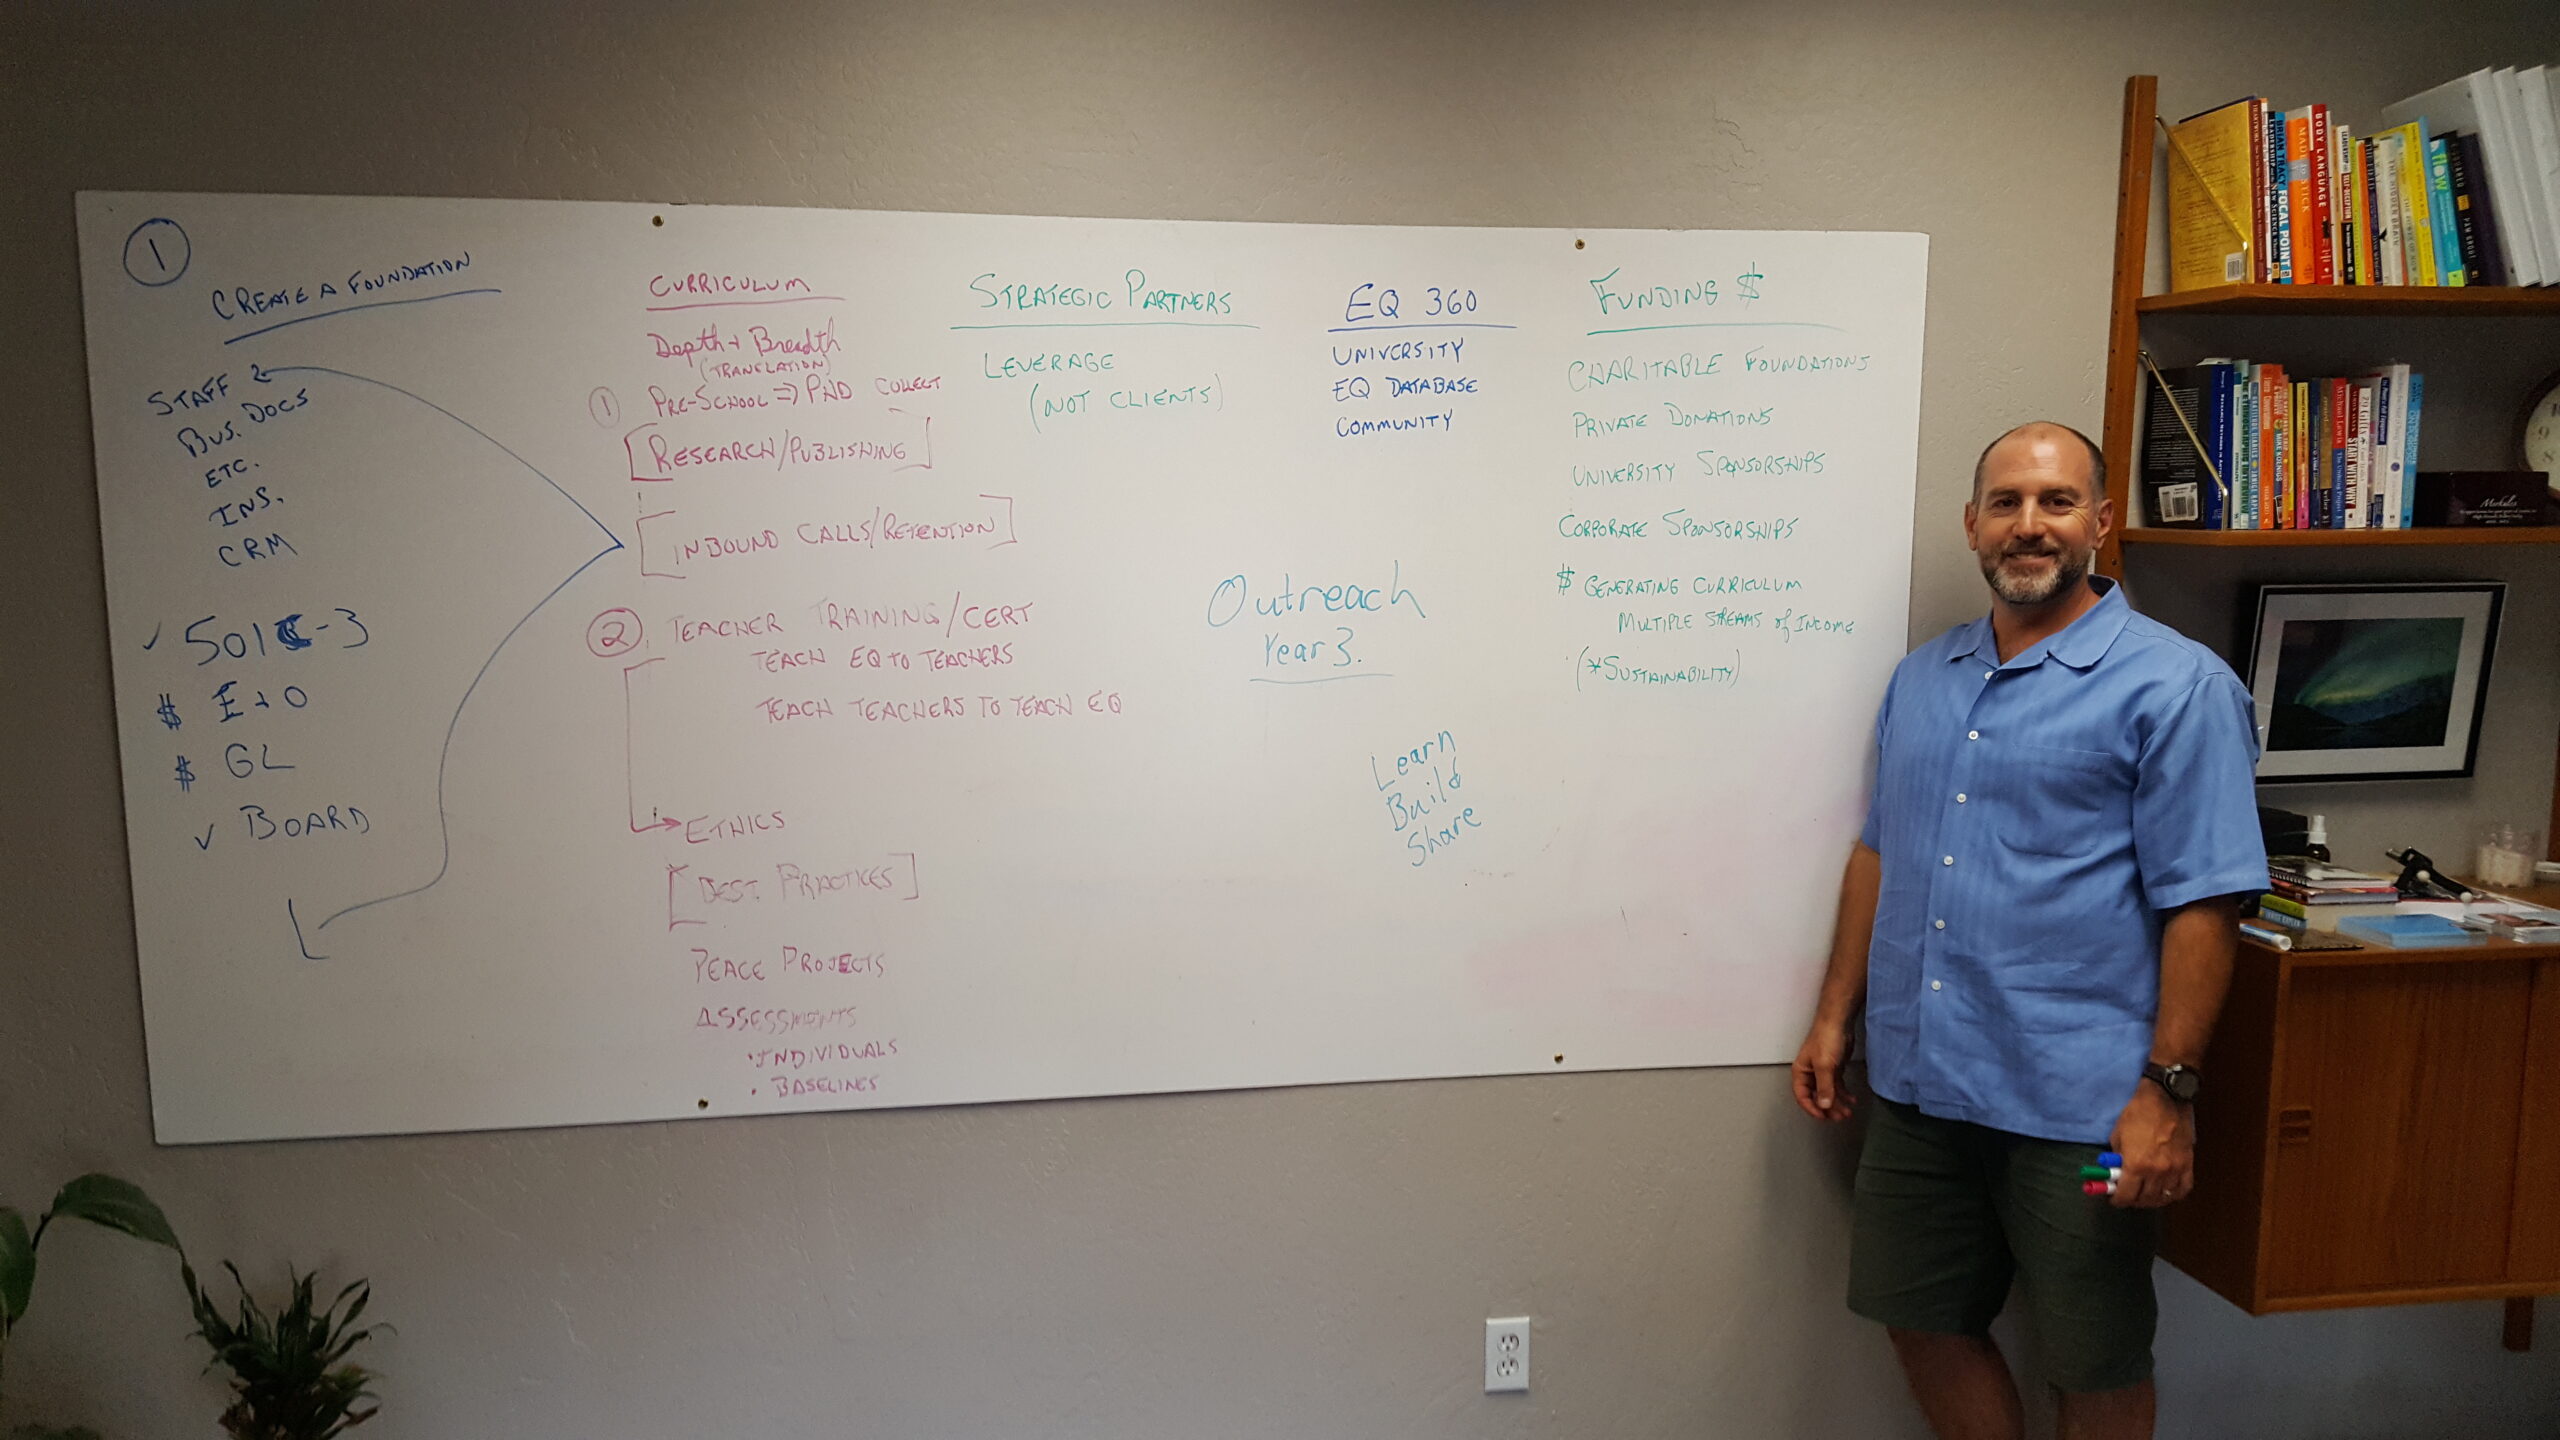 1
CREATE A FOUNDATION
STAFF
BUS. DOCS
ETC.
INS.
CRM
✓ 501C-3
$ E+O
$ GL
✓ BOARD
CURRICULUM
Depth + Breadth
(TRANSLATION)
① PRE-SCHOOL => PHD COLLECT
[RESEARCH/PUBLISHING]
[INBOUND CALLS/RETENTION]
②. TEACHER TRAINING/CERT
TEACH EQ TO TEACHERS
TEACH TEACHERS TO TEACH EQ
ETHICS
[BEST PRACTICES]
PEACE PROJECTS
ASSESSMENTS
• INDIVIDUALS
• BASELINES
STRATEGIC PARTNERS
LEVERAGE
(NOT CLIENTS)
EQ 360
UNIVERSITY
EQ DATABASE
COMMUNITY
Outreach
Year 3.
Learn
Build
Share
FUNDING $
CHARITABLE FOUNDATIONS
PRIVATE DONATIONS
UNIVERSITY SPONSORSHIPS
CORPORATE SPONSORSHIPS
$ GENERATING CURRICULUM
MULTIPLE STREAMS of INCOME
(*SUSTAINABILITY)
BRIAN TRACY FOCAL POINT
MADE TO STICK
BODY LANGUAGE
THE HIDDEN BRAIN
flow
PAM GROUT
Michael Lewis
START WITH WHY